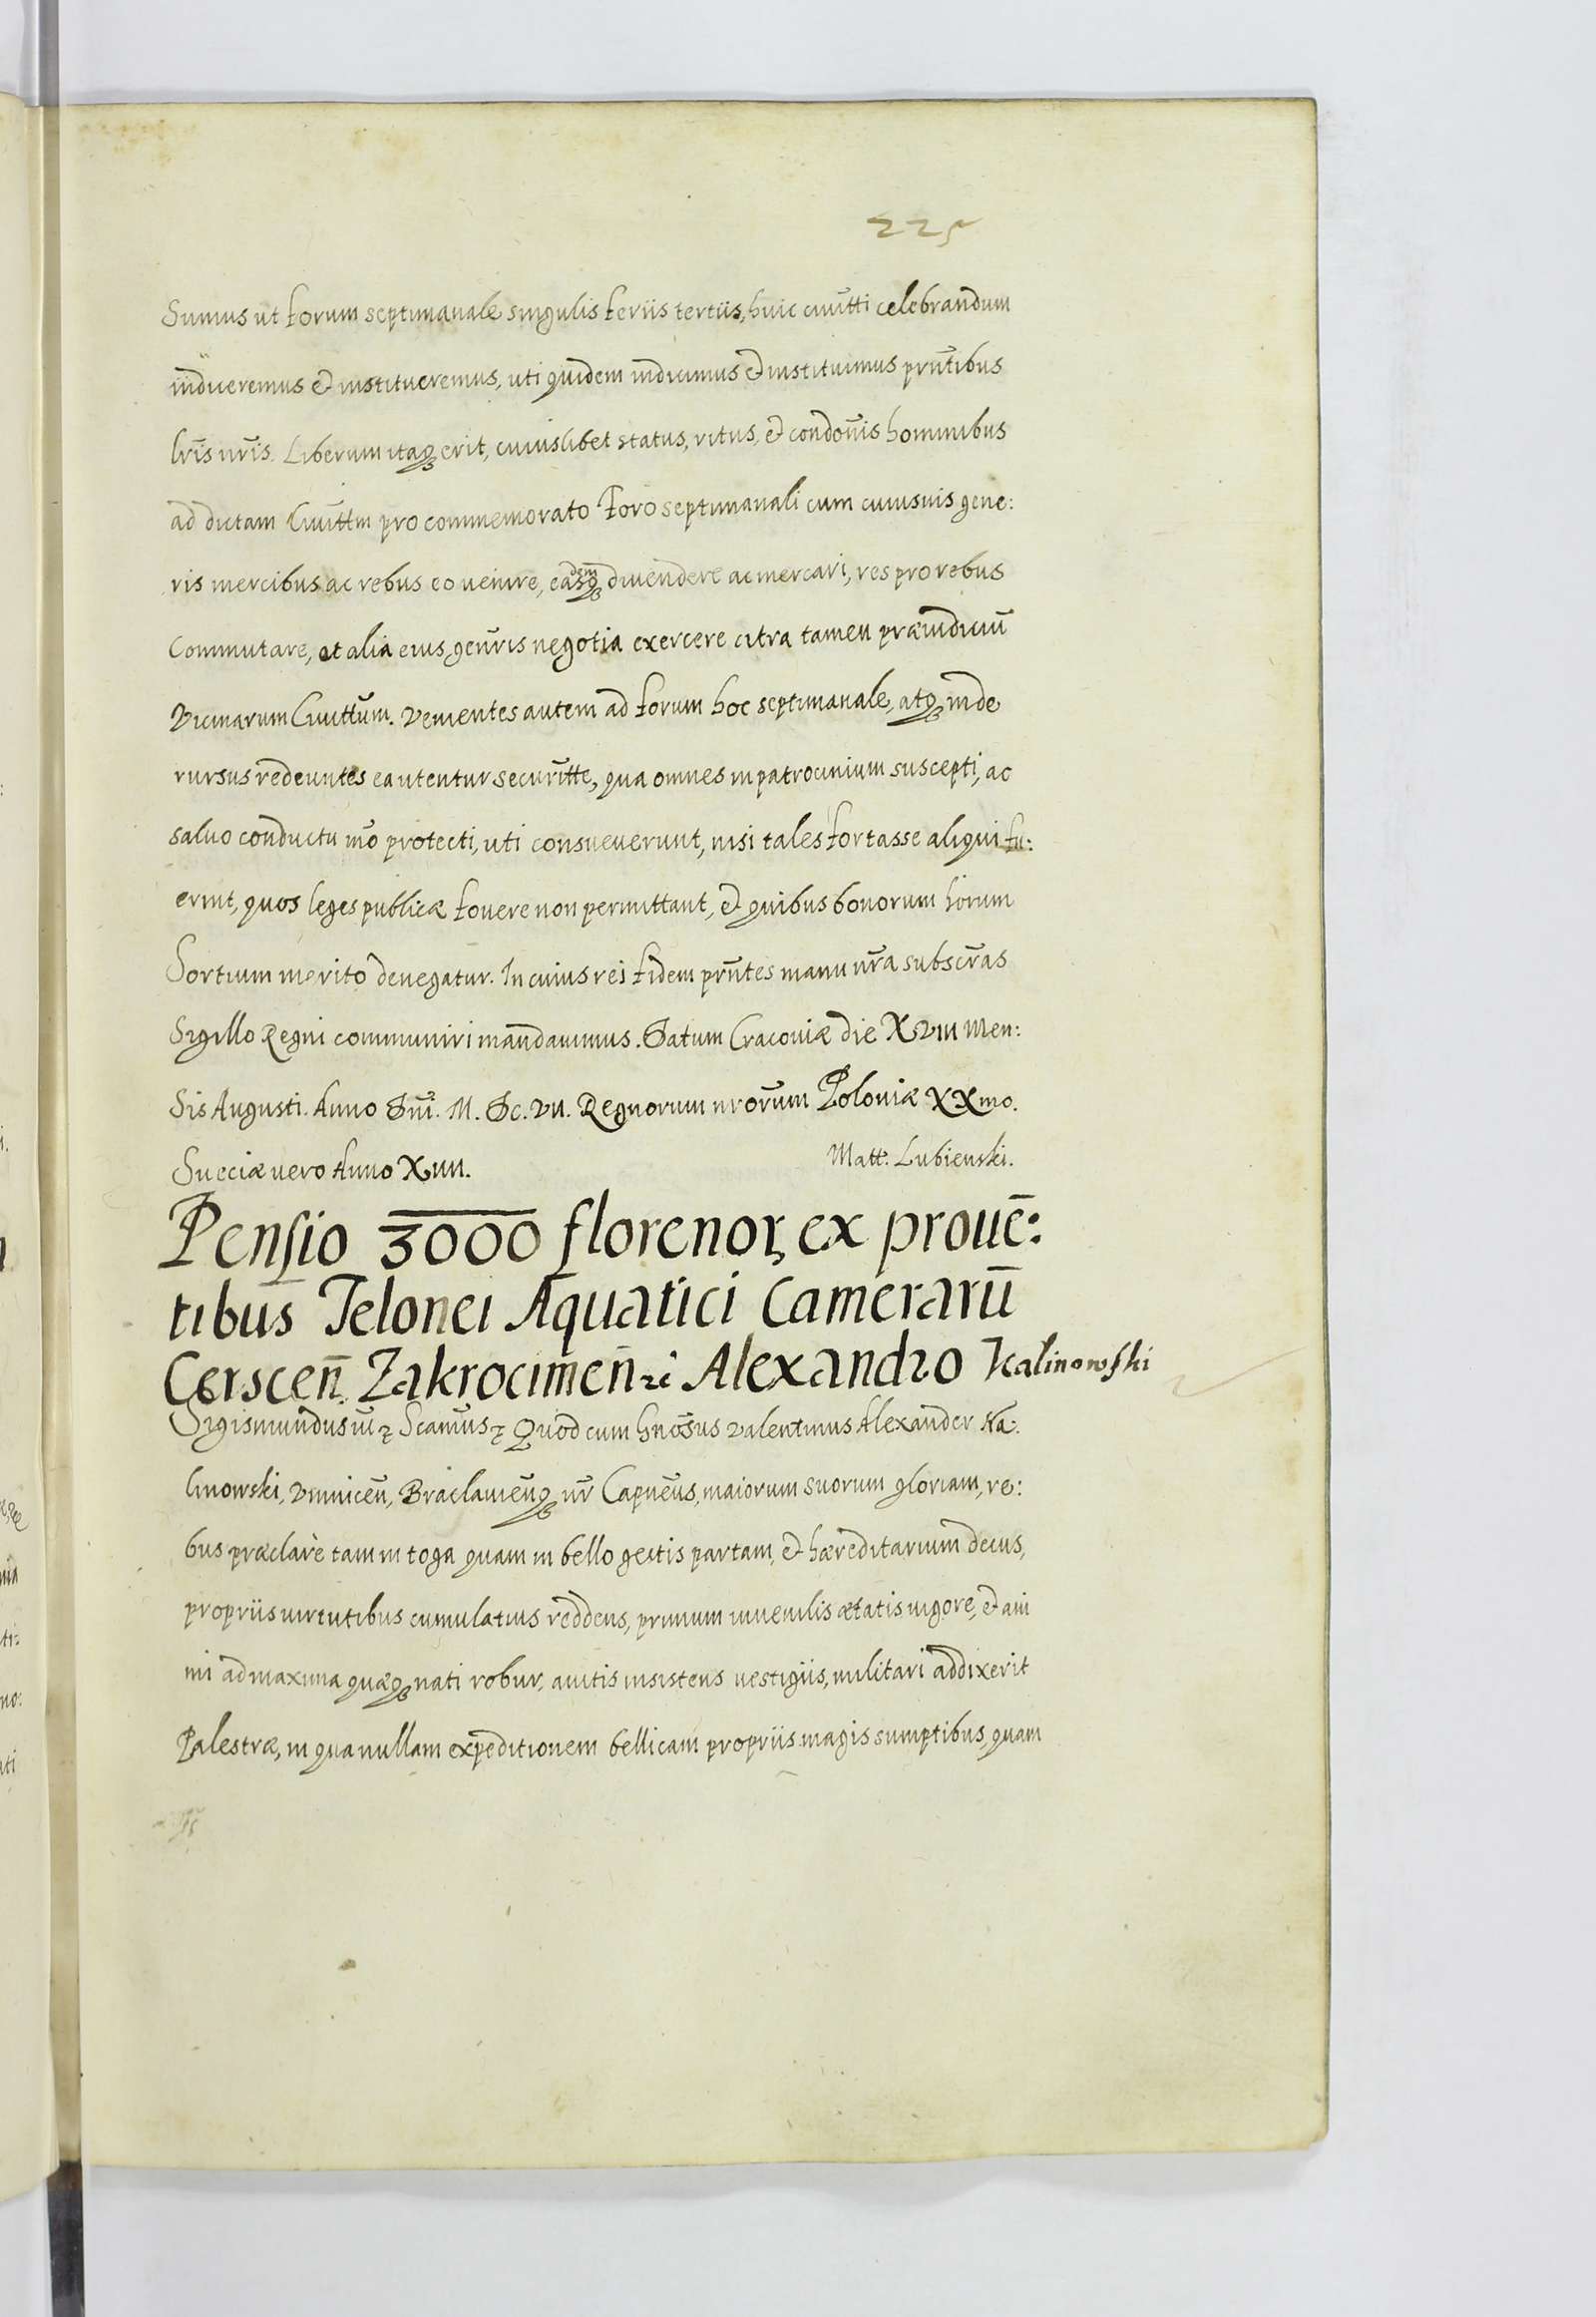 225
Sumus ut forum septimanale singulis feriis tertiis, huic ciuitti celebrandum
indiceremus et institueremus, uti quidem indicimus et instituimus prntibus
lris nris. Liberum itaq erit, cuiuslibet status, ritus, et condonis hominibus
ad dictam Ciuittm pro commemorato Foro septimanali cum cuiusuis gene:
ris mercibus ac rebus eo venire, easdemq diuendere ac mercari, res pro rebus
Commutare, et alia eius generis negotia exercere citra tamen præiudiciū
Vicinarum Ciuittum. Venientes autem ad forum hoc septimanale, atq inde
rursus redeuntes ea utentur securitte, qua omnes in patrocinium suscepti, ac
saluo conductu nro protecti, uti consueuerunt, nisi tales fortasse aliqui fu:
erint, quos leges publicæ fouere non permittant, et quibus bonorum hoium
Sortium merito denegatur. In cuius rei fidem prntes manu nra subscras
Sigillo Regni communiri mandauimus. Datum Cracouiæ die XVIII Men:
Sis Augusti. Anno Dni. M. Dc. VII. Regnorum nrorum Poloniæ XXmo.
Sueciæ vero Anno XIIII.
Matt: Lubienski.
Pensio 3000 florenoꝝ ex prouē:
tibus Telonei Aquatici Camerarū
Cerscen̄. Zakrocimen̄ꝛc Alexandro Kalinowski
Sigismundus III ꝛ Scamus ꝛ Quod cum Gnosus Valentinus Alexander Ka:
linowski, Vinnicen̄, Braclauien̄q nr Capneus, maiorum suorum gloriam, re:
bus præclarè tam in toga quam in bello gestis partam, et hæreditarium decus,
propriis uirtutibus cumulatius reddens, primum iuuenilis ætatis uigore, et ani
mi ad maxima quæq nati robur, auitis insistens uestigiis, militari addixerit
Palestræ, in qua nullam expeditionem bellicam propriis magis sumptibus, quam